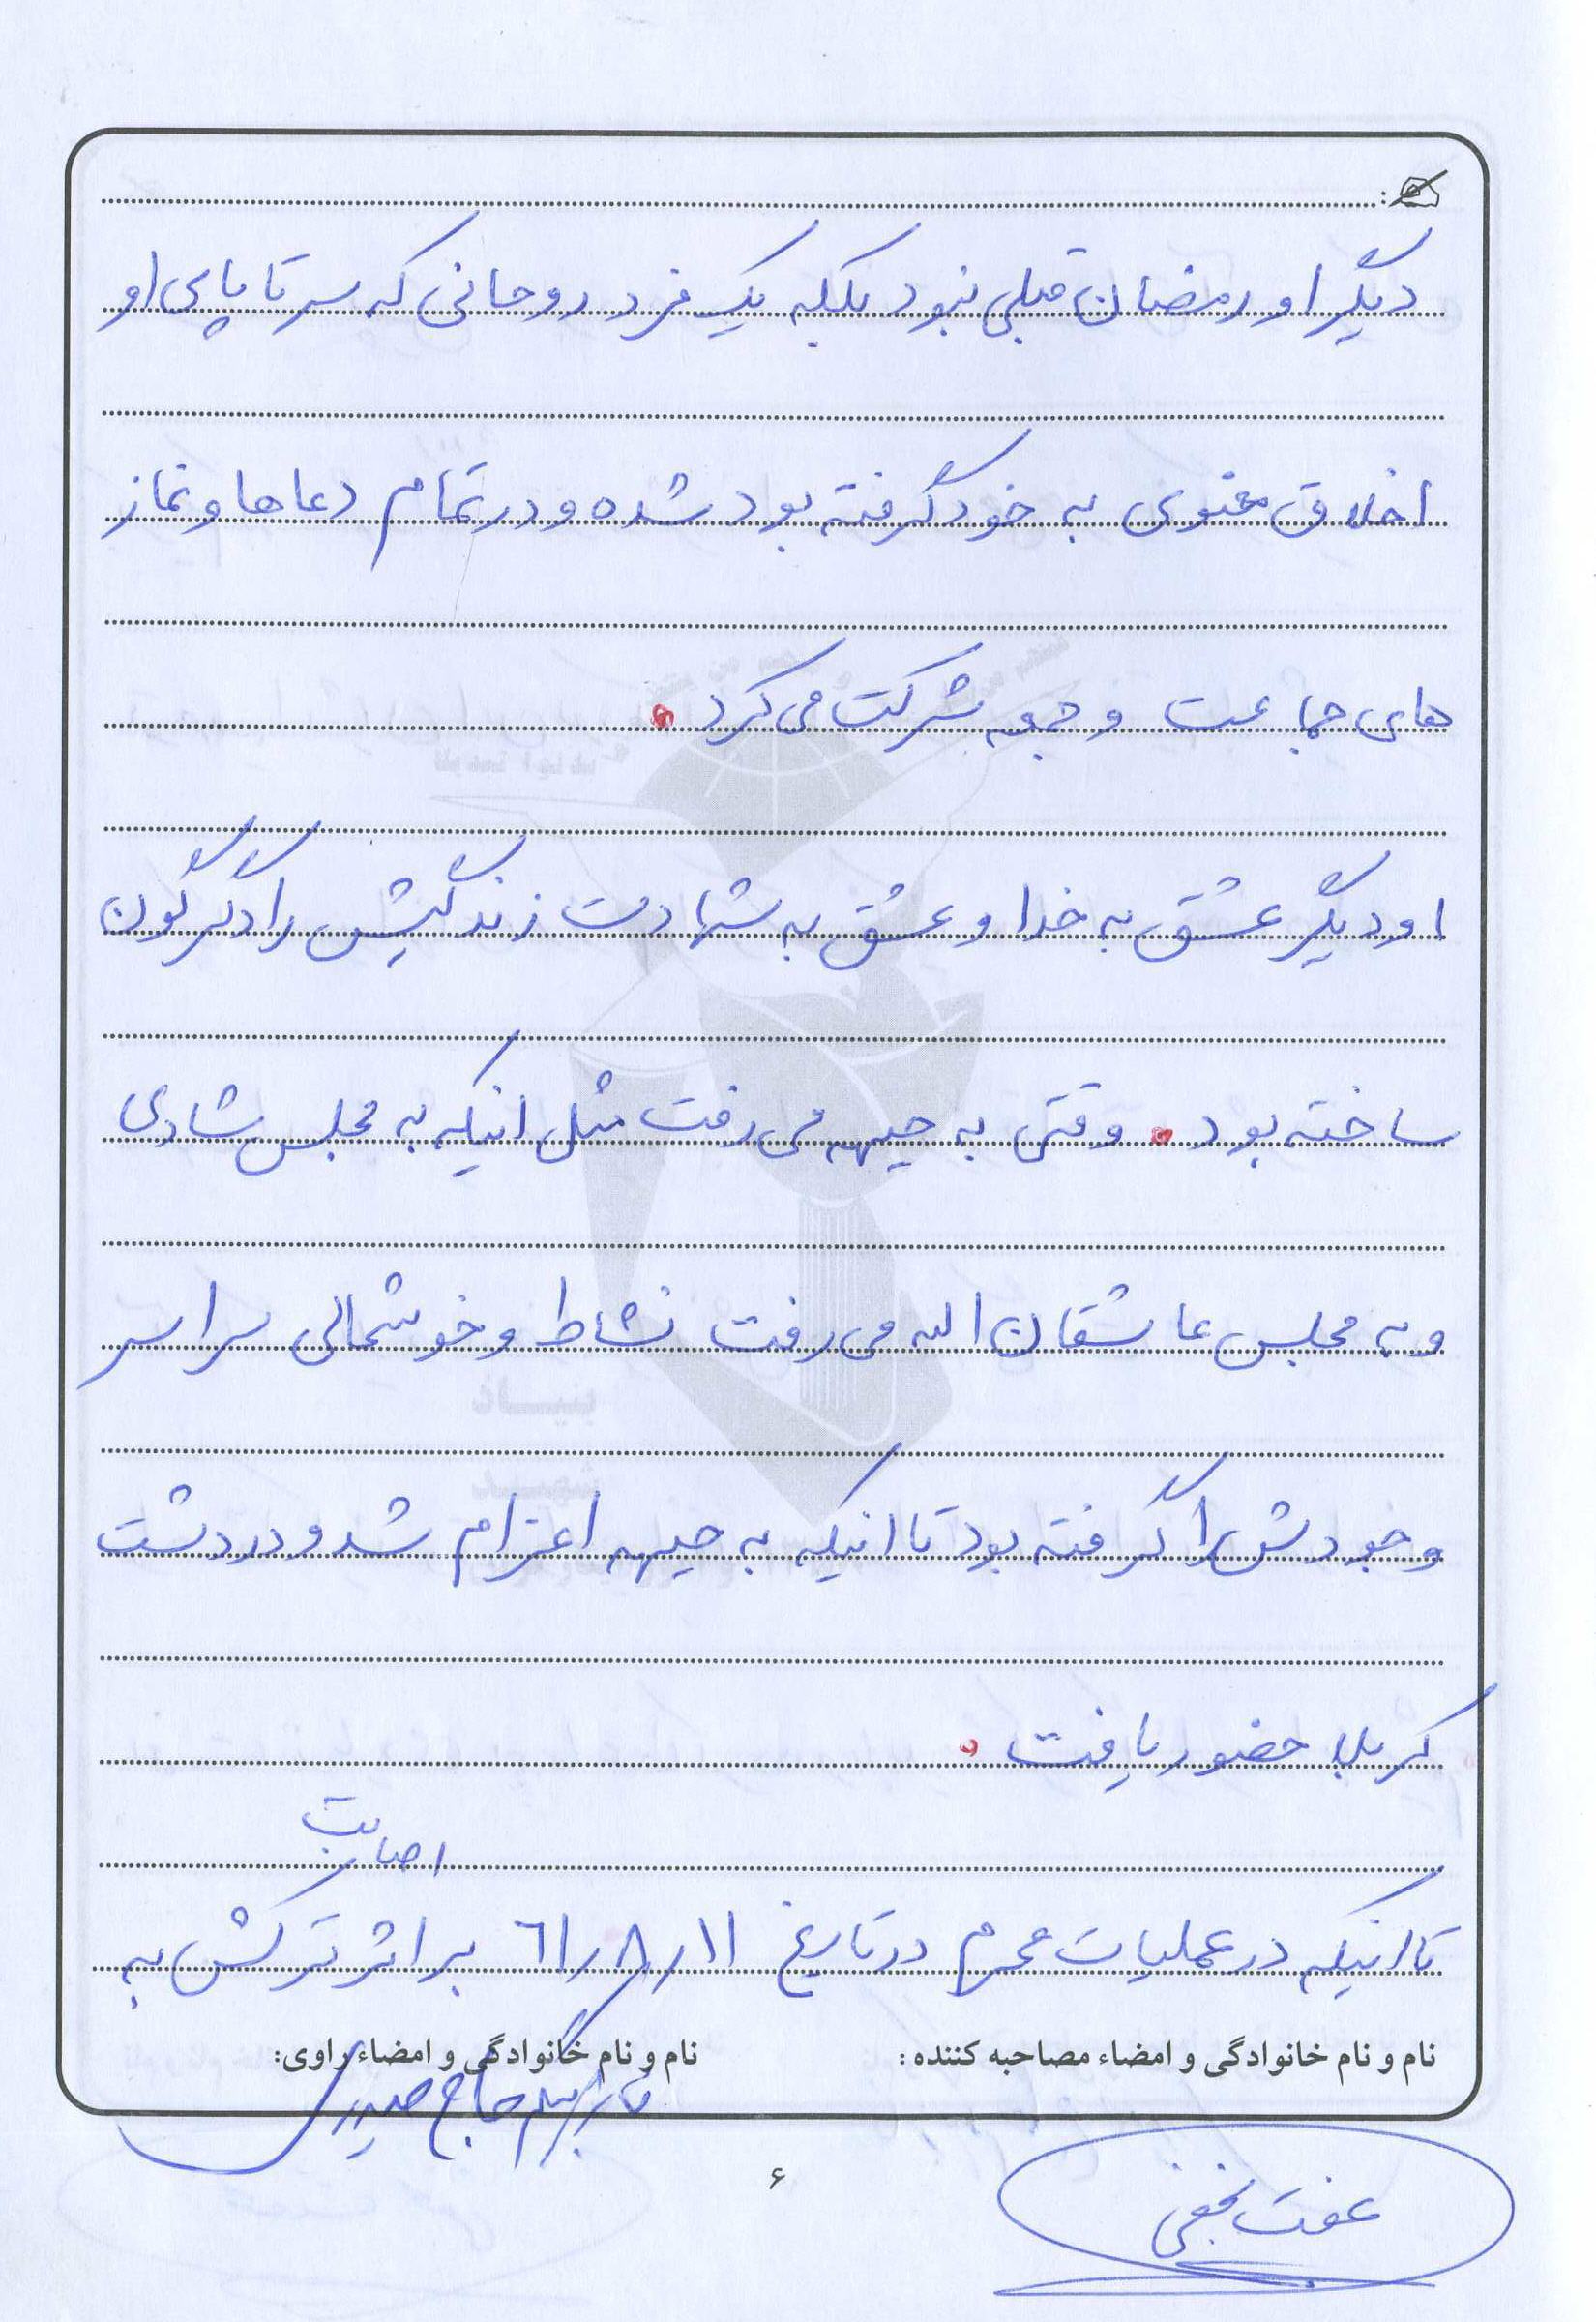 دیگر او رمضان قبلی نبود بلکه یک فرد روحانی که سر تا پای او
اخلاق معنوی به خود گرفته بود شده و در تمام دعاها و نماز
های جماعت و جمعه شرکت می کرد .
او دیگر عشق به خدا و عشق به شهادت زندگیش را دگرگون
ساخته بود . وقتی به جبهه می رفت مثل اینکه به مجلس شادی
و به مجلس عاشقان الله می رفت نشاط و خوشحالی سراسر
وجودش را گرفته بود تا اینکه به جبهه اعزام شد و در دشت
کربلا حضور یافت .
اصابت
تا اینکه در عملیات محرم در تاریخ ۶۱/۸/۱۱ بر اثر ترکش به
نام و نام خانوادگی و امضاء مصاحبه کننده:
نام و نام خانوادگی و امضاء راوی:
حاج حیدری
۶
عفت نجفی